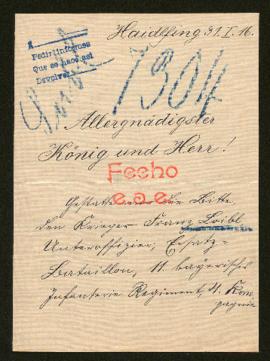 Haidlfing 31.I.16.
Pedir informes
Que se hace así
Devolver
1304
Allergnädigster
König und Herr!
Fecho
e.a.e.
Gestatten die Bitte
den Krieger Franz Loibl
Unteroffizier, Ersatz-
Bataillon, 11. bayerisches
Infanterie Regiment, 4. Kom
pagnie